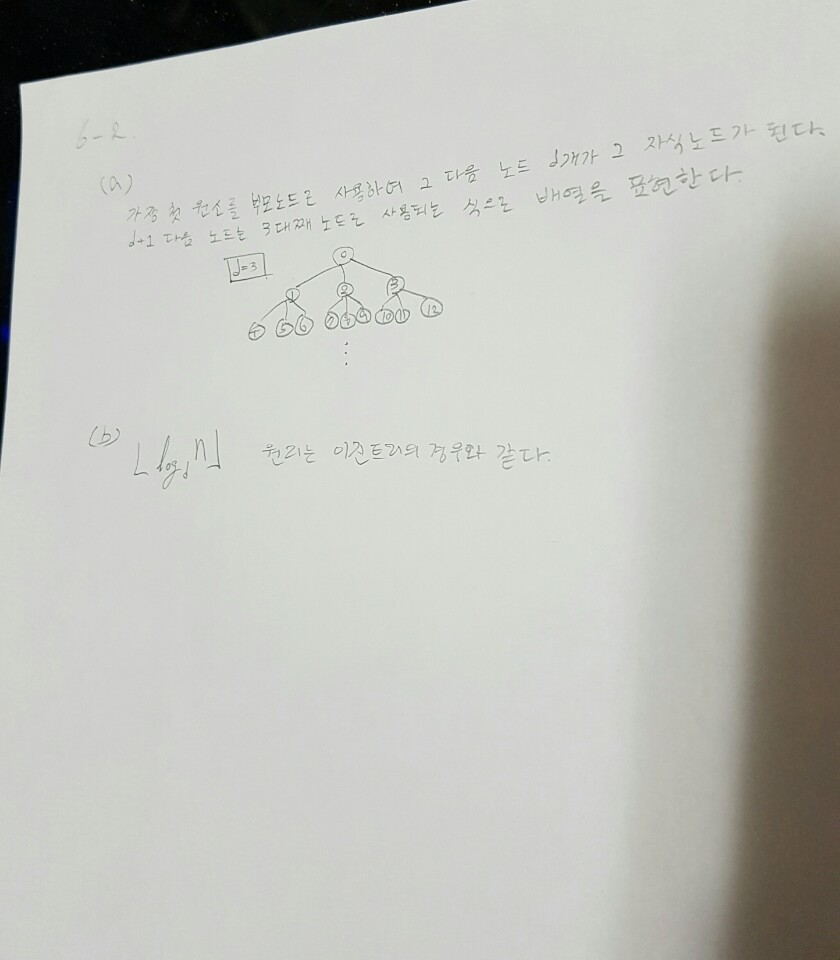 6-2.
(a)
가장 첫 원소를 부모노드로 사용하여 그 다음 노드 d개가 그 자식노드가 된다.
d+1 다음 노드는 3대째 노드로 사용되는 식으로 배열을 표현한다.
d=3
0
1 2 3
4 5 6 7 8 9 10 11 12
(b)
⌊log_d n⌋ 원리는 이진트리의 경우와 같다.